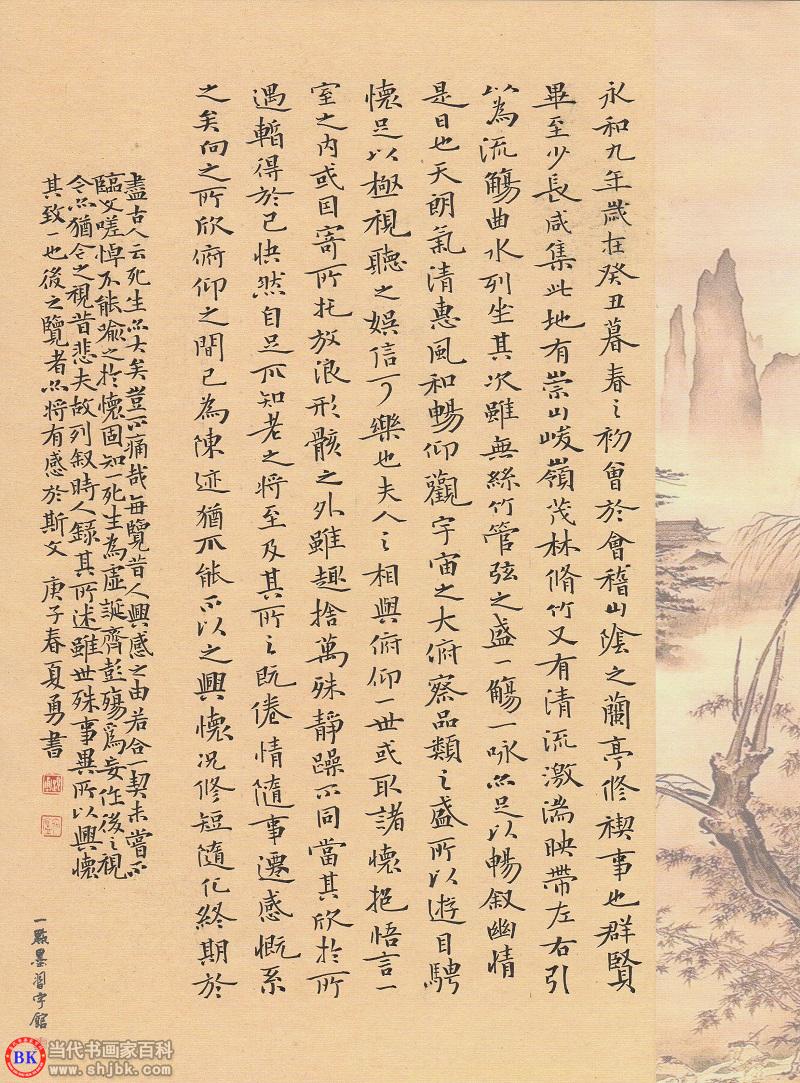 永和九年歲在癸丑暮春之初會於會稽山陰之蘭亭修禊事也群賢
畢至少長咸集此地有崇山峻嶺茂林脩竹又有清流激湍映帶左右引
以為流觴曲水列坐其次雖無絲竹管弦之盛一觴一咏亦足以暢叙幽情
是日也天朗氣清惠風和暢仰觀宇宙之大俯察品類之盛所以遊目騁
懷足以極視聽之娛信可樂也夫人之相與俯仰一世或取諸懷抱悟言一
室之內或因寄所托放浪形骸之外雖趣捨萬殊靜躁不同當其欣於所
遇暫得於己快然自足不知老之將至及其所之既倦情隨事遷感慨系
之矣向之所欣俯仰之間已為陳迹猶不能不以之興懷況修短隨化終期於
盡古人云死生亦大矣豈不痛哉每覽昔人興感之由若合一契未嘗不
臨文嗟悼不能喻之於懷固知一死生為虛誕齊彭殤為妄作後之視
今亦猶今之視昔悲夫故列叙時人錄其所述雖世殊事異所以興懷
其致一也後之覽者亦將有感於斯文 庚子春夏勇書
一點墨習字館
BK
当代书画家百科
www.shjbk.com